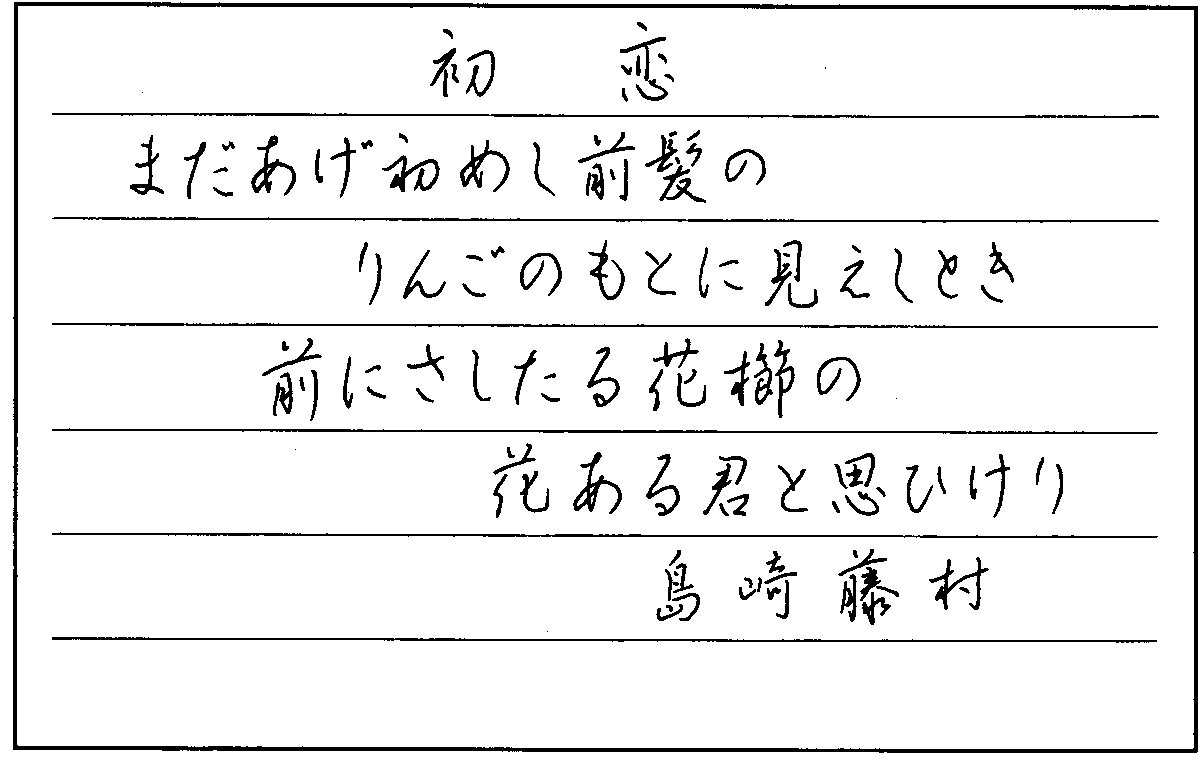 初恋
まだあげ初めし前髪の
りんごのもとに見えしとき
前にさしたる花櫛の
花ある君と思ひけり
島崎藤村